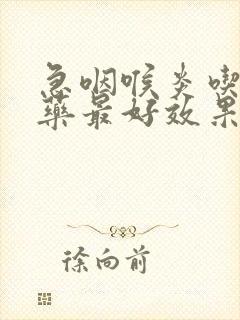 急咽喉炎喫
藥最好效果
徐向前